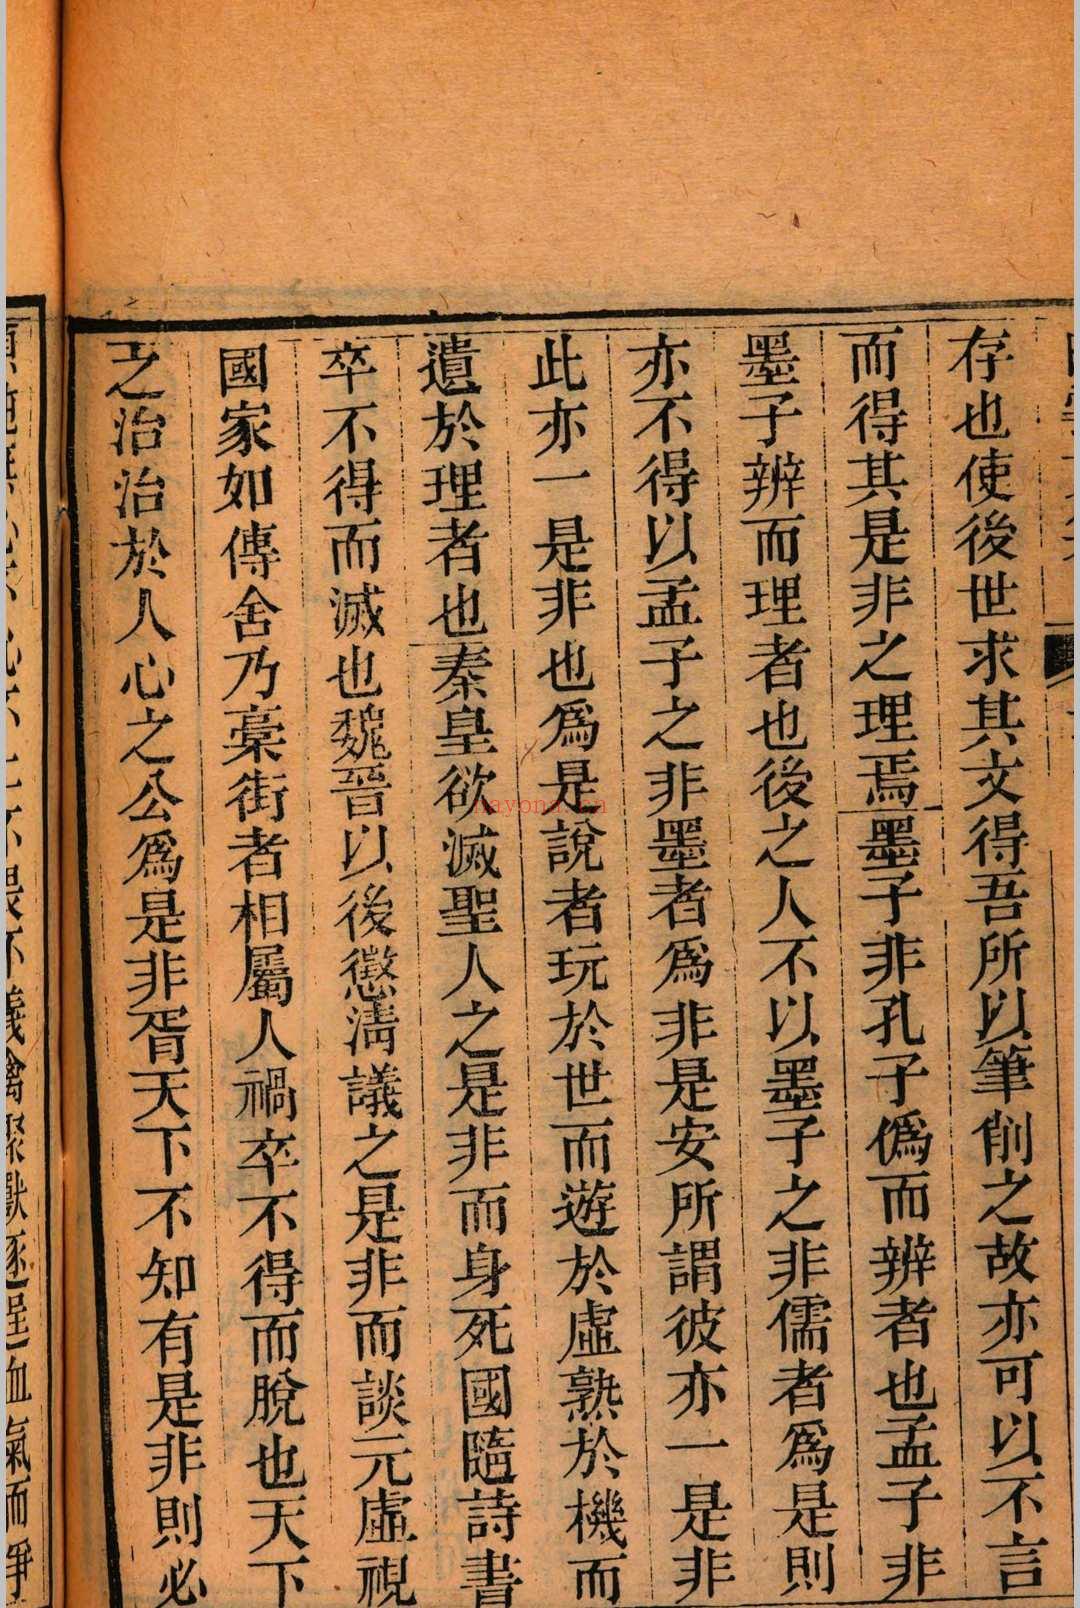 存也使後世求其文得吾所以筆削之故亦可以不言
而得其是非之理焉墨子非孔子僞而辨者也孟子非
墨子辨而理者也後之人不以墨子之非儒者爲是則
亦不得以孟子之非墨者爲非是安所謂彼亦一是非
此亦一是非也爲是說者玩於世而遊於虛熟於機而
遺於理者也秦皇欲滅聖人之是非而身死國隨詩書
卒不得而滅也魏晉以後懲淸議之是非而談元虛視
國家如傳舍乃槀街者相屬人禍卒不得而脫也天下
之治治於人心之公爲是非胥天下不知有是非則必
義禽聚獸逐逞血氣而爭
nayona.cn